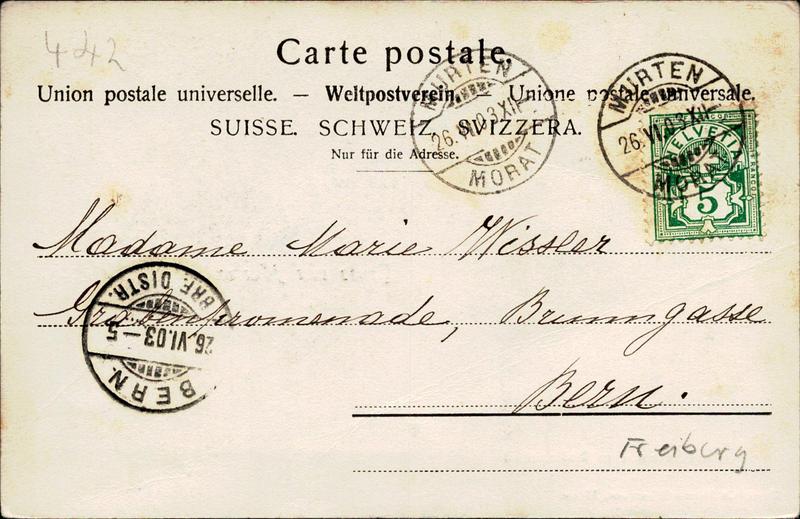 442
Carte postale.
Union postale universelle. — Weltpostverein. — Unione postale universale.
SUISSE. SCHWEIZ. SVIZZERA.
Nur für die Adresse.
MURTEN
26.VI.03.XII
MORAT
MURTEN
26.VI.03.XII
MORAT
HELVETIA
5
FRANCO
Madame Marie Wissler
Grabenpromenade, Brunngasse
Bern.
BRF. DISTR.
26.VI.03—5
BERN
Freiburg